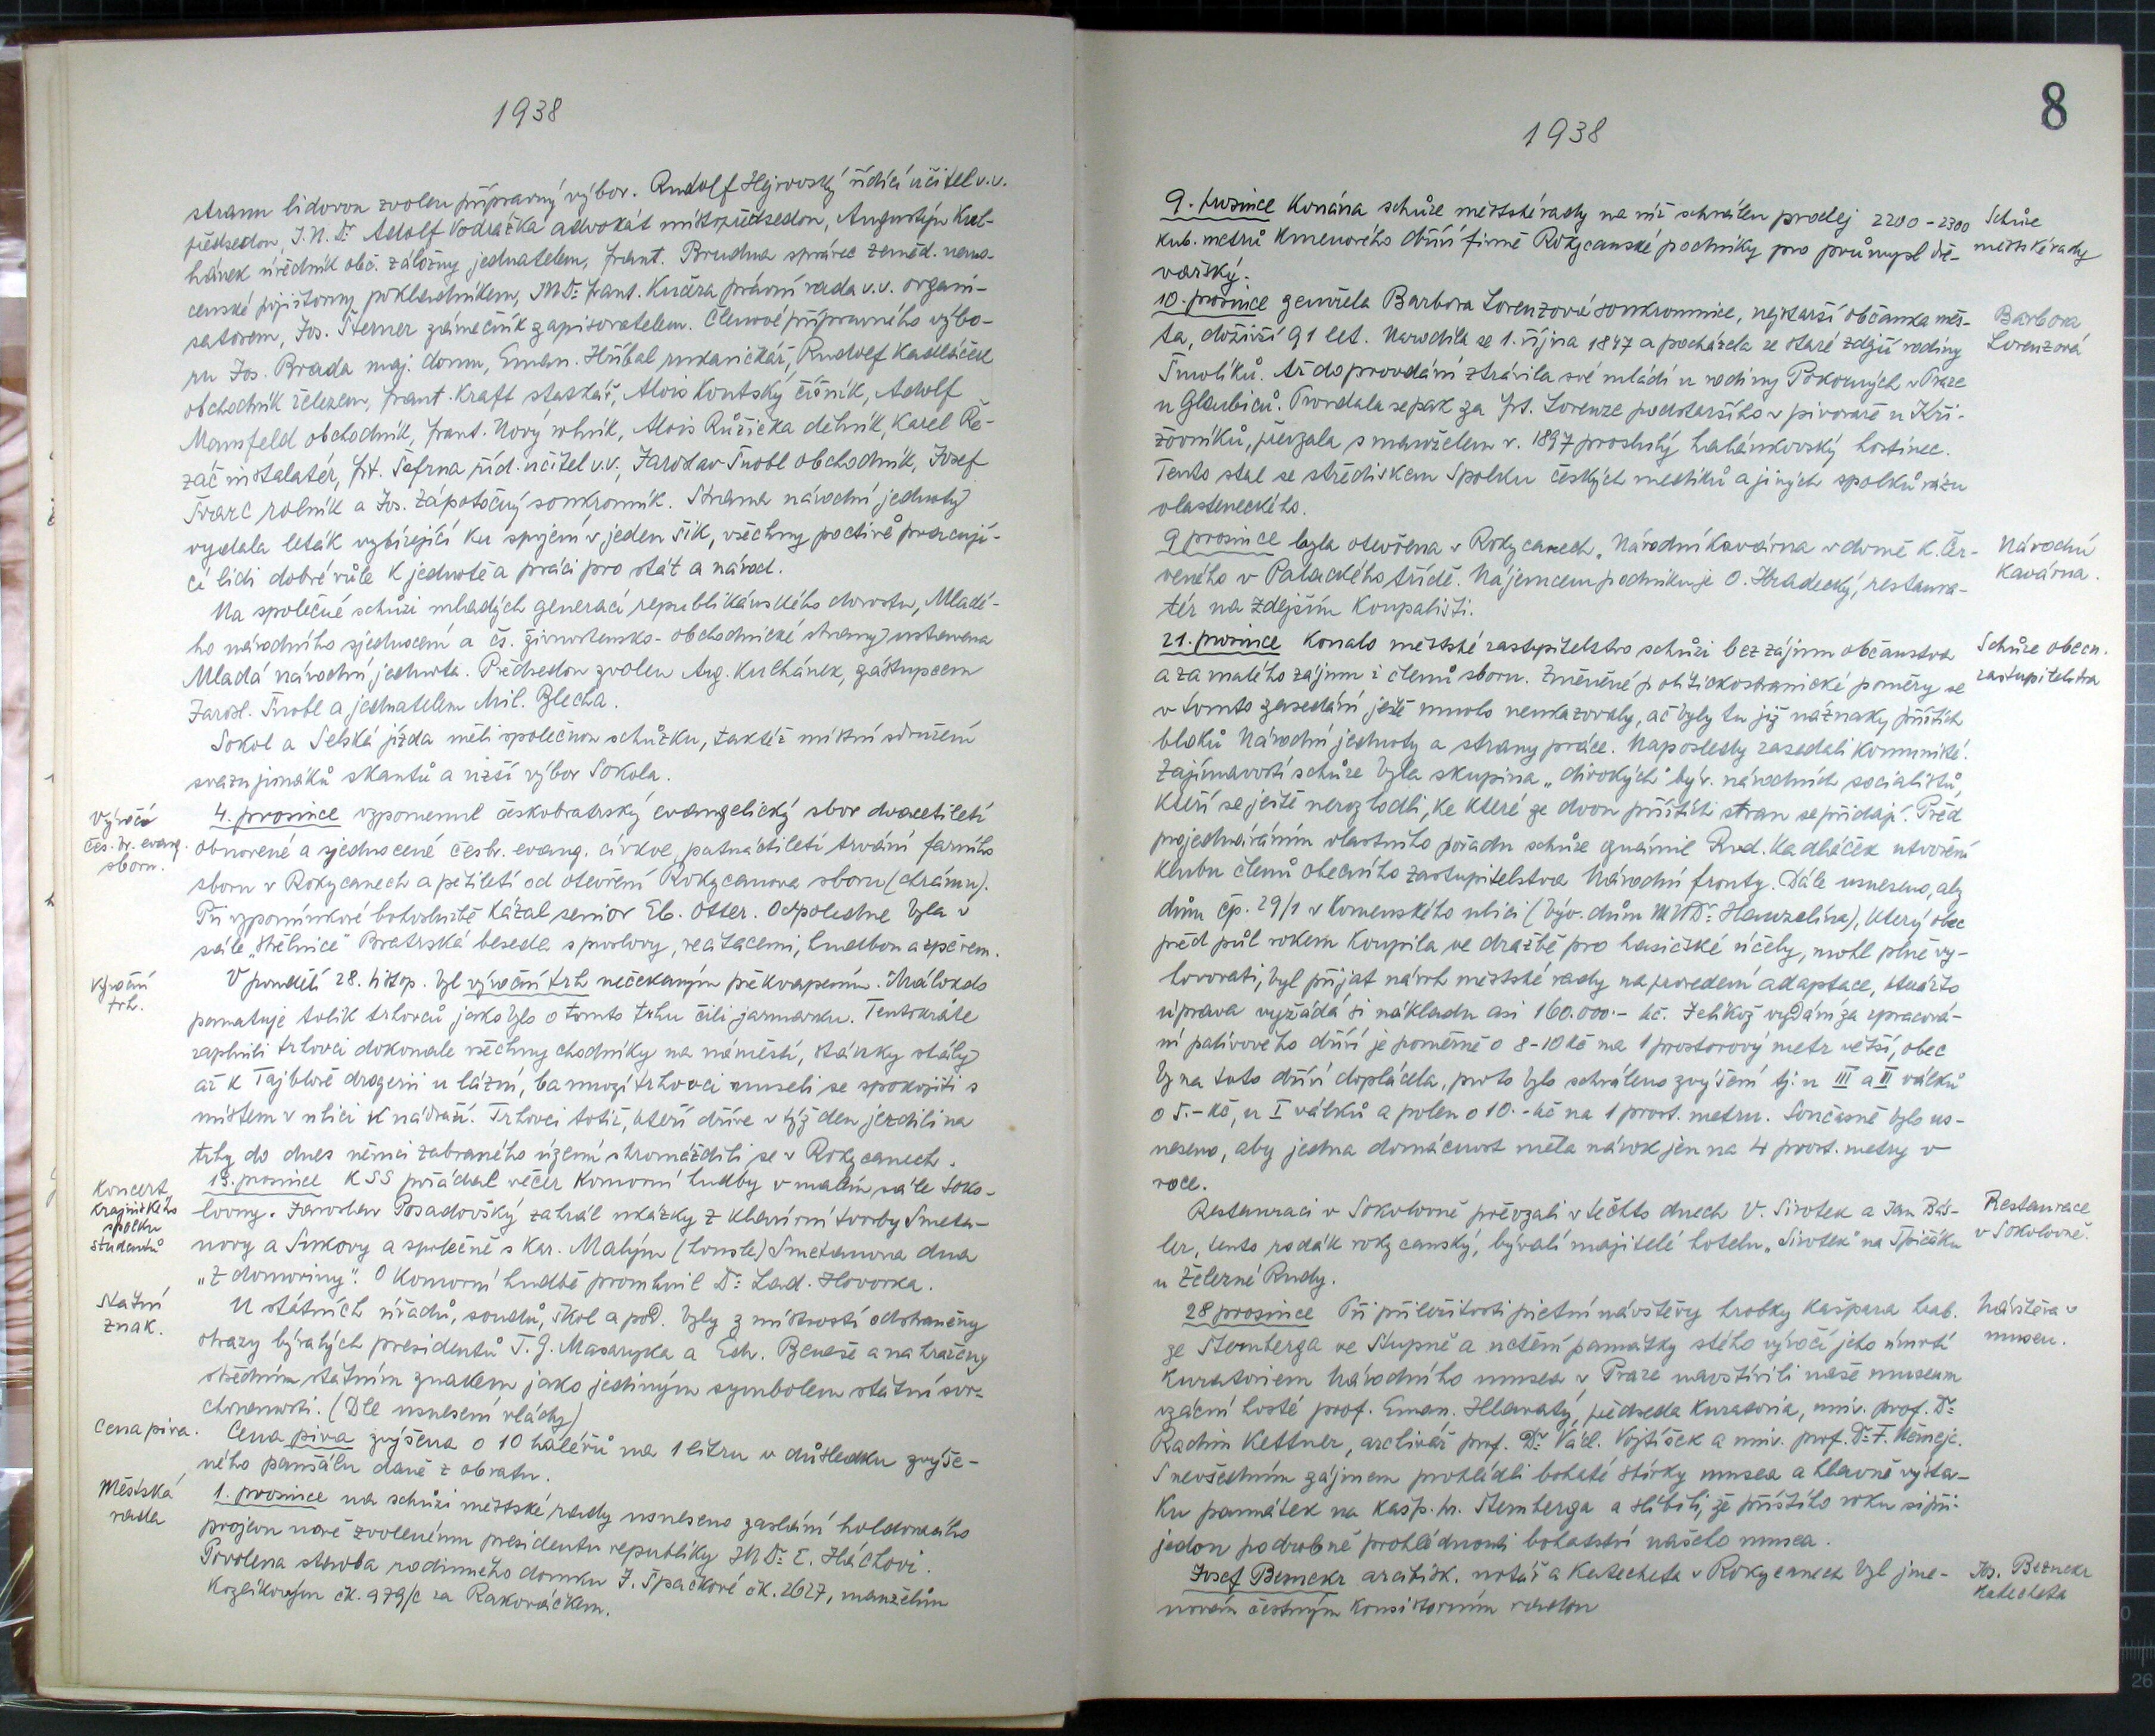 1938
stranu lidovou zvolen přípravný výbor. Rudolf Hejrovský řídící učitel v.v.
předsedou, J.U.Dr Adolf Vodrážka advokát místopředsedou, Augustýn Kul-
hánek úředník obč. záložny jednatelem, Frant. Brudna správce zeměd. nemo-
censké pojišťovny pokladníkem, JUDr Frant. Kučera právní rada v.v. organi-
satorem, Jos. Šterner zámečník zapisovatelem. Členové přípravného výbo-
ru Jos. Brada maj. domu, Eman. Hříbal rukavičkář, Rudolf Kadláček
obchodník železem, Frant. Kraft sládkář, Alois Koutský číšník, Adolf
Mansfeld obchodník, Frant. Nový rolník, Alois Růžička dělník, Karel Ře-
záč instalatér, Fr. Šefrna říd. učitel v.v., Jaroslav Šnobl obchodník, Josef
Švarc rolník a Jos. Zápotočný soukromník. Strana národní jednoty
vydala leták vybízející ku spojení v jeden šik, všechny poctivě pracují-
cí lidi dobré vůle k jednotě a práci pro stát a národ.
Na společné schůzi mladých generací republikánského dorostu, Mladé-
ho národního sjednocení a čs. živnostensko-obchodnické strany ustavena
Mladá národní jednota. Předsedou zvolen Aug. Kulhánek, zástupcem
Jarosl. Šnobl a jednatelem Mil. Blecha.
Sokol a Selská jízda měli společnou schůzku, taktéž místní sdružení
svazu junáků skautů a užší výbor Sokola.
Výročí
čes. br. evang.
sboru.
4. prosince vzpomenul českobratrský evangelický sbor dvacetiletí
obnovené a sjednocené česbr. evang. církve, patnáctiletí trvání farního
sboru v Rokycanech a pětiletí od otevření Rokycanova sboru (chrámu).
Při vzpomínkové bohoslužbě kázal senior Eb. Otter. Odpoledne byla v
sále „Střelnice" Bratrská beseda s proslovy, recitacemi, hudbou a zpěvem.
Výroční
trh.
V pondělí 28. listop. byl výroční trh nečekaným překvapením. Málokdo
pamatuje tolik trhovců jako bylo o tomto trhu čili jarmarku. Tentokráte
zaplnili trhovci dokonale všechny chodníky na náměstí, stánky stály
až k Tajblově drogerii u lázní, ba mnozí trhovci museli se spokojiti s
místem v ulici k nádraží. Trhovci totiž, kteří dříve v týž den jezdili na
trhy do dnes němci zabraného území shromáždili se v Rokycanech.
Koncert
Krajinského
spolku
studentů
13. prosince KSS pořádal večer Komorní hudby v malém sále soko-
lovny. Jaroslav Posadovský zahrál ukázky z klavírní tvorby Smeta-
novy a Sukovy a společně s Kar. Malým (housle) Smetanova dua
„Z domoviny". O Komorní hudbě promluvil Dr. Lad. Hovorka.
Státní
znak.
U státních úřadů, soudů, škol a pod. byly z místností odstraněny
obrazy bývalých presidentů T.G. Masaryka a Edv. Beneše a nahraženy
středním státním znakem jako jediným symbolem státní svr-
chovanosti. (Dle usnesení vlády)
Cena piva.
Cena piva zvýšena o 10 haléřů na 1 litru v důsledku zvýše-
ného paušálu daně z obratu.
Městská
rada
1. prosince na schůzi městské rady usneseno zaslání holdovacího
projevu nově zvolenému presidentu republiky JUDr. E. Háchovi.
Povolena stavba rodinného domku J. Špačkové čk. 2627, manželům
Kozlíkovým čk. 979/c za Rakováčkem.
8
1938
9. prosince konána schůze městské rady na níž schválen prodej 2200-2300
kub. metrů kmenového dříví firmě Rokycanské podniky pro průmysl dře-
vařský.
Schůze
městské rady
10. prosince zemřela Barbora Lorenzová soukromnice, nejstarší občanka měs-
ta, doživší 91 let. Narodila se 1. října 1847 a pocházela ze staré zdejší rodiny
Šmolíků. Až do provdání ztrávila své mládí u rodiny Pokorných v Praze
u Glaubiců. Provdala se pak za Frt. Lorenze podstaršího v pivovaře u Kři-
žovníků, převzala s manželem r. 1897 proslulý hahánkovský hostinec.
Tento stal se střediskem Spolku českých mestiků a jiných spolků rázu
vlasteneckého.
Barbora
Lorenzová
9 prosince byla otevřena v Rokycanech „Národní kavárna v domě K. Čer-
veného v Palackého třídě. Nájemcem podniku je O. Hradecký, restaura-
tér na zdejším koupališti.
Národní
kavárna.
21. prosince konalo městské zastupitelstvo schůzi bez zájmu občanstva
a za malého zájmu i členů sboru. Změněné politickostranické poměry se
v tomto zasedání ještě mnoho neukazovaly, ač byly tu již náznaky příštích
bloků Národní jednoty a strany práce. Naposledy zasedali komunisté.
Zajímavostí schůze byla skupina „divokých" býv. národních socialistů,
kteří se ještě nerozhodli, ke které ze dvou příštích stran se přidají. Před
projednáváním vlastního pořadu schůze oznámil Rud. Kadláček utvoření
klubu členů obecního zastupitelstva Národní fronty. Dále usneseno, aby
dům čp. 29/1 v Komenského ulici (býv. dům MUDr. Hanzelína), který obec
před půl rokem koupila ve dražbě pro hasičské účely, mohl plně vy-
hovovati, byl přijat návrh městské rady na provedení adaptace, kterážto
úprava vyžádá si nákladu asi 160.000.- kč. Jelikož vydání za zpracová-
ní palivového dříví je poměrně o 8-10 kč na 1 prostorový metr větší, obec
by na toto dříví doplácela, proto bylo schváleno zvýšení tj. u III a II válků
o 5.- kč, u I válků a polen o 10.- kč na 1 prost. metru. Současně bylo us-
neseno, aby jedna domácnost měla nárok jen na 4 prost. metry v
roce.
Schůze obecn.
zastupitelstva
Restauraci v Sokolovně převzali v těchto dnech V. Sirotek a Jan Bás-
ler, tento rodák rokycanský, bývalí majitelé hotelu „Sirotek" na Špičáku
u Železné Rudy.
Restaurace
v Sokolovně.
28 prosince Při příležitosti pietní návštěvy hrobky Kašpara hrab.
ze Šternberga ve Stupně a uctění památky stého výročí jeho úmrtí
kuratoriem Národního musea v Praze navštívili naše museum
vzácní hosté prof. Eman. Hlavatý, předseda kuratoria, univ. prof. Dr.
Radim Kettner, archivář prof. Dr. Václ. Vojtíšek a univ. prof. Dr. F. Němejc.
S nevšedním zájmem prohlédli bohaté sbírky musea a hlavně výsta-
ku památek na Kašp. hr. Šternberga a slíbili, že příštího roku si při-
jedou podrobně prohlédnouti bohatství našeho musea.
Návštěva v
museu.
Josef Beznekr arcibisk. notář a katecheta v Rokycanech byl jme-
nován čestným konsistorním radou
Jos. Beznekr
katecheta